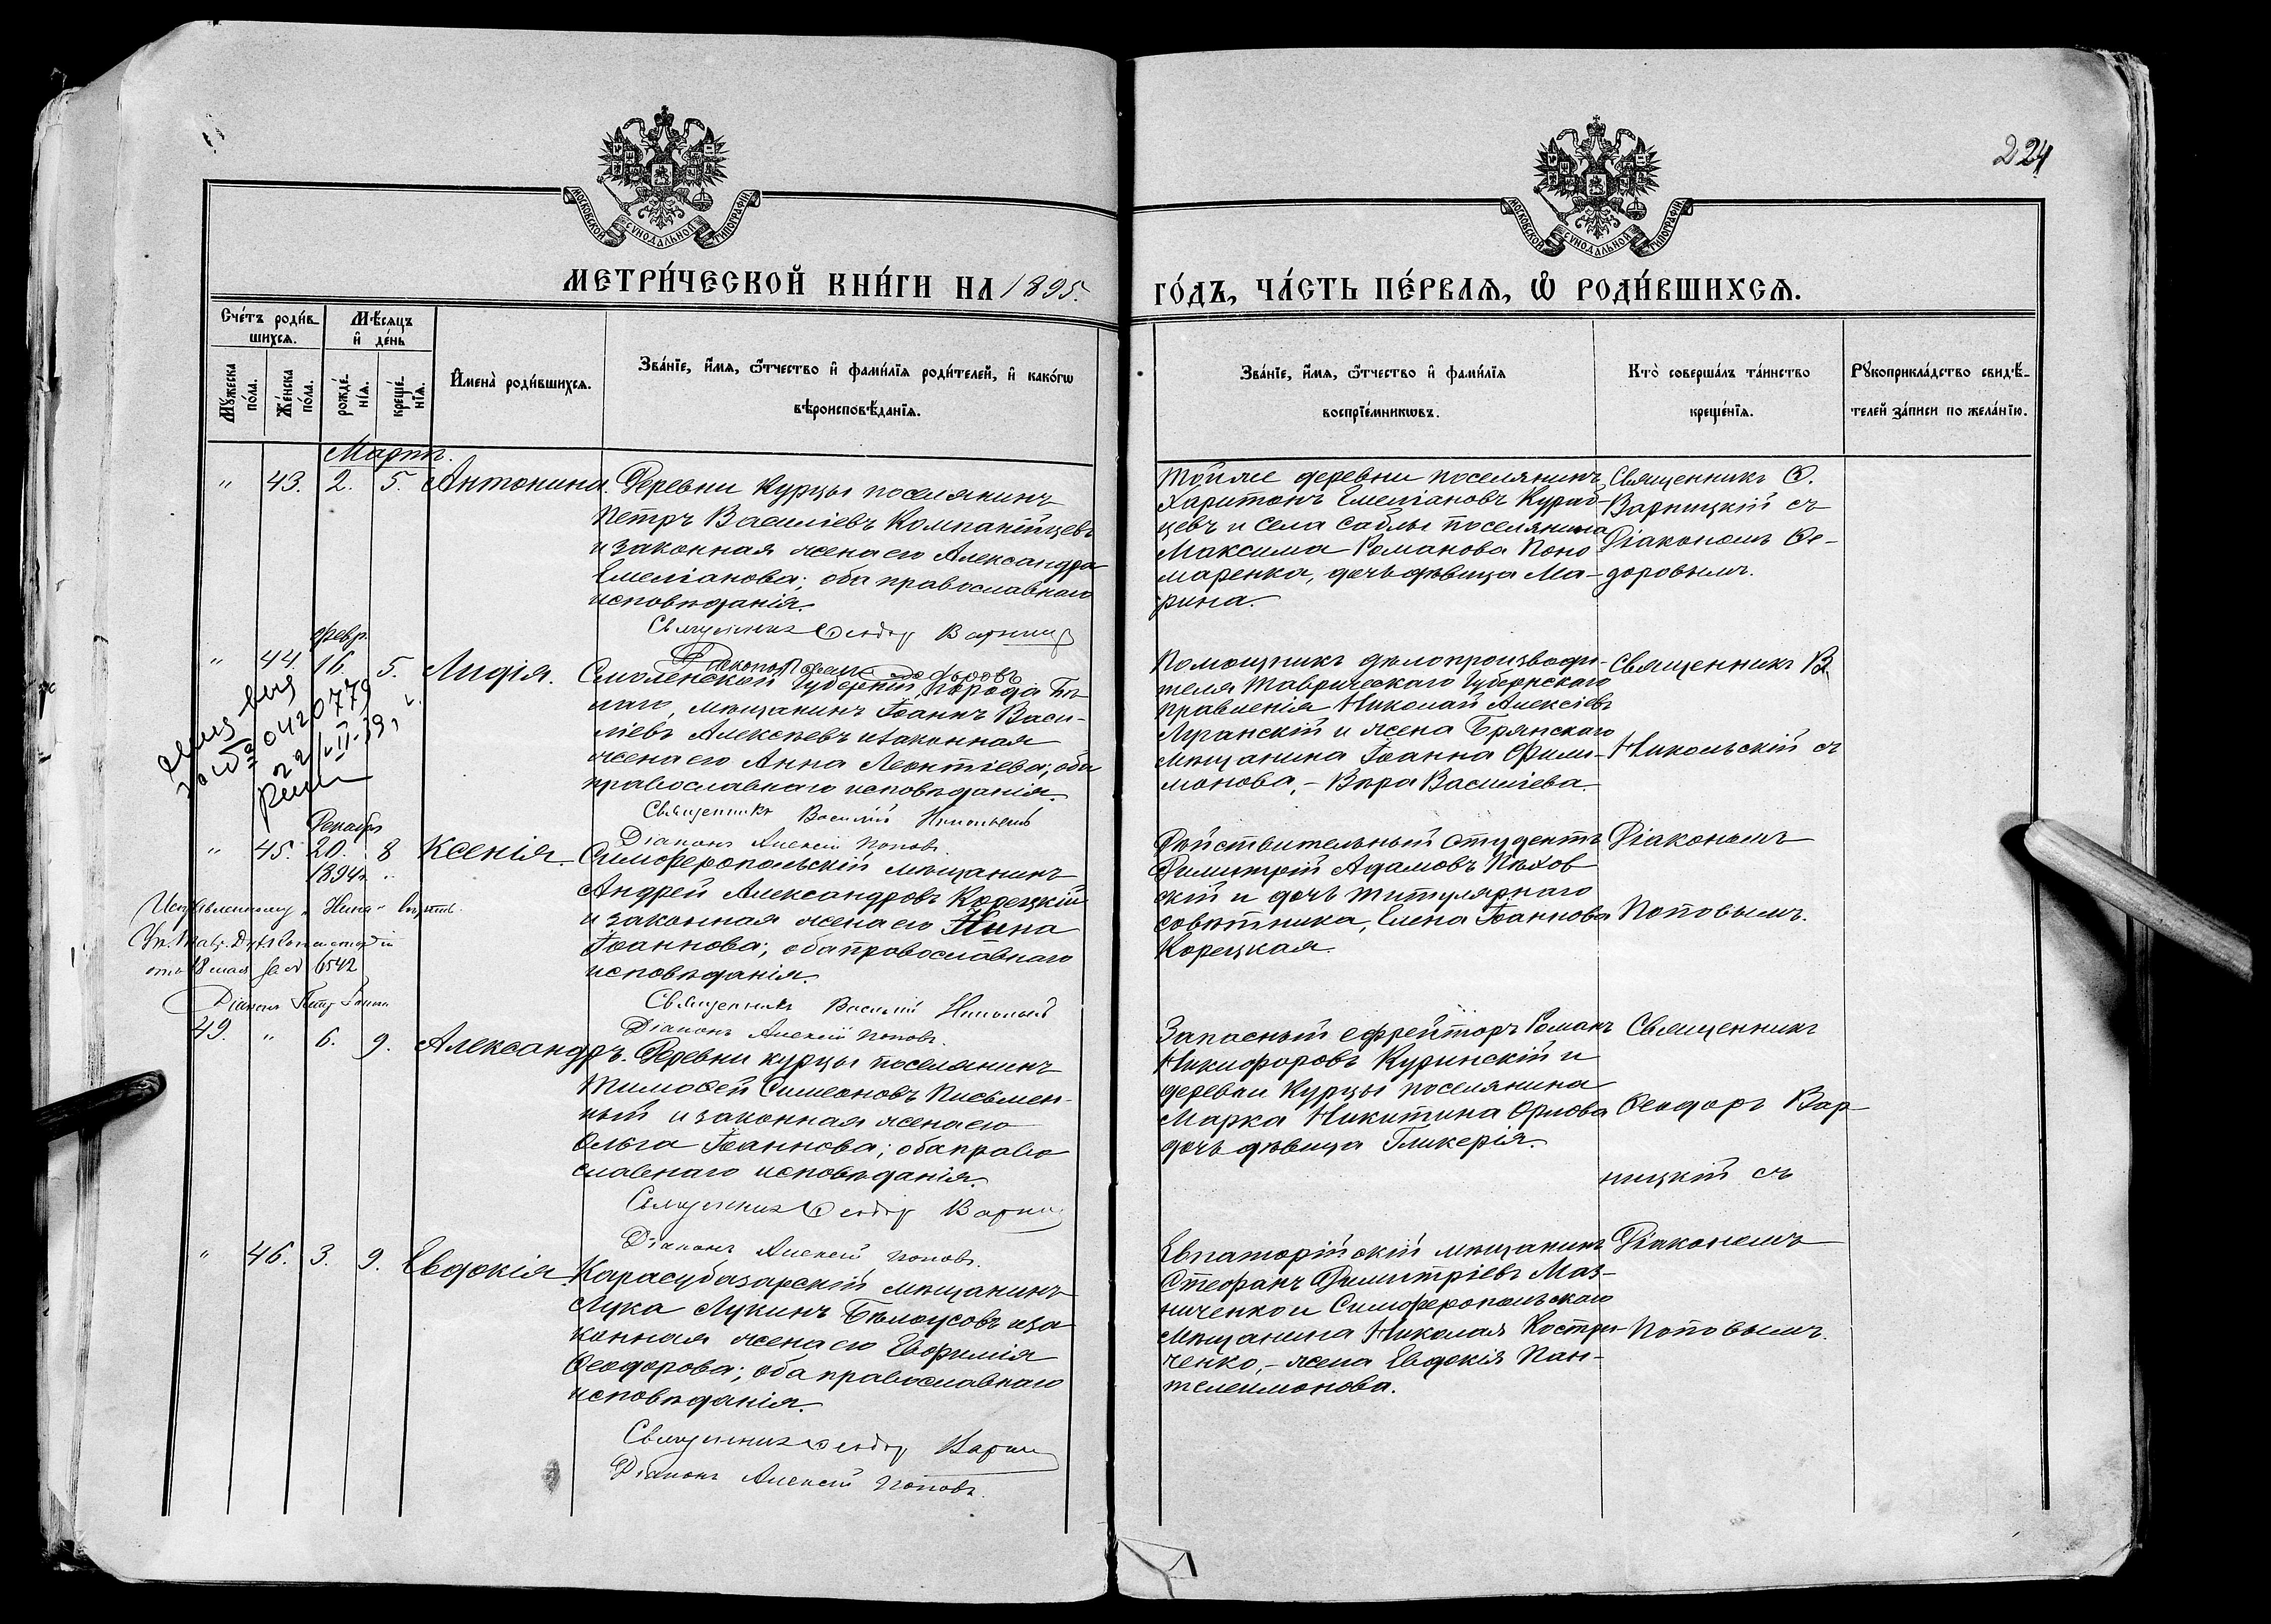 224
МОСКОВСКОЙ СѴНОДАЛЬНОЙ ТИПОГРАФІИ
МОСКОВСКОЙ СѴНОДАЛЬНОЙ ТИПОГРАФІИ
МЕТРИ́ЧЕСКОЙ КНИ́ГИ НА 1895.
ГО́ДЪ, ЧА́СТЬ ПЕ́РВАѦ, Ѽ РОДИ́ВШИХСѦ.
Сче́тъ роди́в
шихсѧ.
Мѣ́сяцъ
и҆ де́нь
Мꙋ́жеска
по́ла.
Же́нска
по́ла.
рожде́-
нїѧ.
креще́-
нїѧ.
И҆мена̀ роди́вшихсѧ.
Зва́нїе, и҆́мѧ, ѻ҆́тчество и҆ фами́лїѧ роди́телей, и҆ како́гѡ
вѣроисповѣ́данїѧ.
Зва́нїе, и҆́мѧ, ѻ҆́тчество и҆ фами́лїѧ
воспрїе́мникѡвъ.
Кто̀ соверша́лъ та́инство
креще́нїѧ.
Рꙋкоприкла́дство свидѣ́-
телей за́писи по жела́нїю.
Мартъ.
" 43. 2. 5. Антонина.
Деревни Курцы поселянинъ
Петръ Василіевъ Компанійцевъ
и законная жена его Александра
Емеліанова; оба православнаго
исповѣданія.
Священникъ Ѳеодор Варниц
Діаконъ
Тойже деревни поселянинъ
Харитонъ Емеліановъ Кураб-
цевъ и села Саблы поселянина
Максима Романова Поно-
маренка, дочь дѣвица Ма-
рина.
Священникъ Ѳ.
Варницкій съ
Діакономъ Ѳе-
доровымъ.
Февр.
" 44. 16. 5. Лидія.
Смоленской Губерніи, города Бѣ
лаго, мѣщанинъ Іоаннъ Васи-
ліевъ Алексѣевъ и законная
жена его Анна Леонтіева; оба
православнаго исповѣданія.
Священникъ Василій Никольскій
Діаконъ Алексій Поповъ.
за № 0420779
22/II-39 г.
Помощникъ дѣлопроизводи-
теля Таврическаго Губернскаго
Правленія Николай Алексіевъ
Луганскій и жена Брянскаго
мѣщанина Іоанна Фили-
монова, - Вѣра Василіева.
Священникъ В.
Никольскій съ
Декабр
" 45. 20. 8 Ксенія.
1894 г. "
Симферопольскій мѣщанинъ
Андрей Александровъ Корецкій
и законная жена его Нина
Іоаннова; оба православнаго
исповѣданія.
Священникъ Василій Никольскій
Діаконъ Алексій Поповъ.
Исправленному „Нина“ вѣрить.
Ук. Тавр. Дух. Консисторіи
отъ 18 мая за № 6542
Діаконъ Петр
Дѣйствительный студентъ
Димитрій Адамовъ Пѣхов
скій и дочь титулярнаго
совѣтника, Елена Іоаннова
Корецкая.
Діакономъ
Поповымъ.
49. " 6. 9. Александръ.
Деревни Курцы поселянинъ
Тимоѳей Симеоновъ Письмен-
ный и законная жена его
Ольга Іоаннова; оба право
славнаго исповѣданія.
Священникъ Ѳеодор Варниц
Діаконъ Алексій Поповъ.
Запасный ефрейторъ Романъ
Никифоровъ Куринскій и
деревни Курцы поселянина
Марка Никитина Орлова
дочь дѣвица Гликерія.
Священникъ
Ѳеодоръ Вар-
ницкій съ
" 46. 3. 9. Евдокія
Карасубазарскій мѣщанинъ
Лука Лукинъ Бѣлоусовъ и за
конная жена его Евфимія
Ѳеодорова; оба православнаго
исповѣданія.
Священникъ Ѳеодор Варниц
Діаконъ Алексій Поповъ.
Евпаторійскій мѣщанинъ
Стефанъ Димитріевъ Маз-
ниченко и Симферопольскаго
мѣщанина Николая Костри-
ченко, - жена Евдокія Пан-
телеимонова.
Діакономъ
Поповымъ.